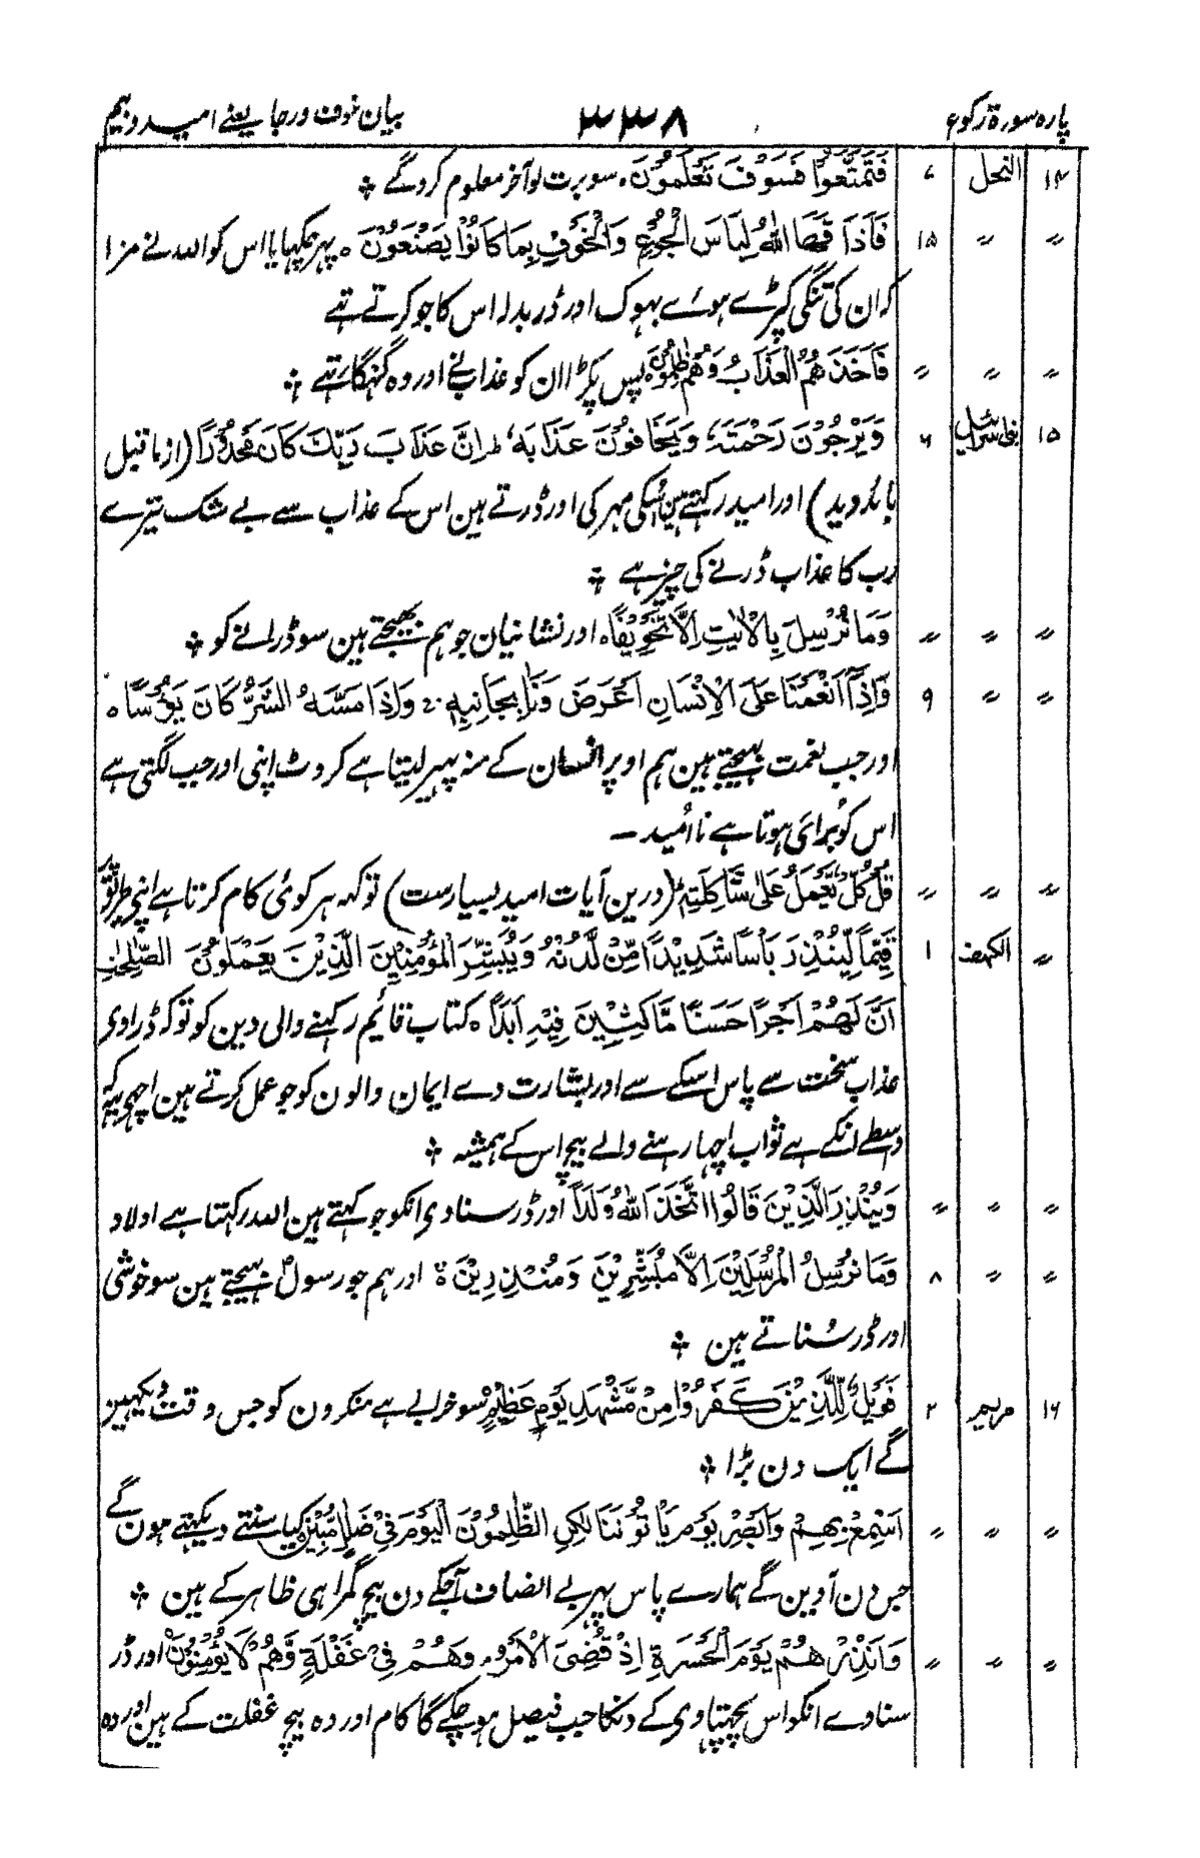 پارہ سورۃ رکوع ۳۳۸ بیان خوف ورجا یعنے امید وبیم
۱۴ النحل ۷ فَتَمَتَّعُوْا فَسَوْفَ تَعْلَمُوْنَ۔ سو برت لو آخر معلوم کروگے
〃 〃 ۱۵ فَاَذَاقَهَا اللّٰهُ لِبَاسَ الْجُوْعِ وَالْخَوْفِ بِمَا كَانُوْا يَصْنَعُوْنَ ہ پہر چکہایا اس کو اللہ نے مزا
کہ ان کی تنگی کپڑے ہوئے بہوک اور ڈر بدلا اس کا جو کرتے تہے
〃 〃 〃 فَاَخَذَهُمُ الْعَذَابُ وَهُمْ ظٰلِمُوْنَ ہ پس پکڑا ان کو عذاب نے اور وہ گنہگار تہے
۱۵ بنی اسرائیل ۶ وَيَرْجُوْنَ رَحْمَتَهٗ وَيَخَافُوْنَ عَذَابَهٗ ط اِنَّ عَذَابَ رَبِّكَ كَانَ مَحْذُوْرًا (از ماقبل
باید دید) اور امید رکہتے ہین اسکی مہر کی اور ڈرتے ہین اس کے عذاب سے بے شک تیرے
رب کا عذاب ڈرنے کی چیز ہے
〃 〃 〃 وَمَا نُرْسِلَ بِالْاٰيٰتِ اِلَّا تَخْوِيْفًا ہ اور نشانیان جو ہم بھیجتے ہین سو ڈرانے کو
〃 〃 ۹ وَاِذَآ اَنْعَمْنَا عَلَى الْاِنْسَانِ اَعْرَضَ وَنَاٰ بِجَانِبِهٖ ۰ وَاِذَا مَسَّهُ الشَّرُّ كَانَ يَؤُسًا ہ
اور جب نعمت بہیجتے ہین ہم اوپر انسان کے منہ پہیر لیتا ہے کروٹ اپنی اور جب لگتی ہے
اس کو برائی ہوتا ہے نا اُمید ــ
〃 〃 〃 قُلْ كُلٌّ يَّعْمَلُ عَلٰى شَاكِلَتِهٖ (درین آیات امید بسیارست) تو کہہ ہر کوئی کام کرتا ہے اپنی طریق پر
〃 الکہف ۱ قَيِّمًا لِّيُنْذِرَ بَاْسًا شَدِيْدًا مِّنْ لَّدُنْهُ وَيُبَشِّرَ الْمُؤْمِنِيْنَ الَّذِيْنَ يَعْمَلُوْنَ الصّٰلِحٰتِ
اَنَّ لَهُمْ اَجْرًا حَسَنًا مَّاكِثِيْنَ فِيْهِ اَبَدًا ہ کتاب قائیم رکہنے والی دین کو تو کہ ڈراوی
عذاب سخت سے پاس اسکے سے اور بشارت دے ایمان والون کو جو عمل کرتے ہین اچہے یہ کہ
وسطے انکے ہے ثواب اچہا رہنے والے بیچ اس کے ہمیشہ
〃 〃 〃 وَيُنْذِرَ الَّذِيْنَ قَالُوا اتَّخَذَ اللّٰهُ وَلَدًا اور ڈر سناوی انکو جو کہتے ہین اللہ رکہتا ہے اولاد
〃 〃 ۸ وَمَا نُرْسِلُ الْمُرْسَلِيْنَ اِلَّا مُبَشِّرِيْنَ وَمُنْذِرِيْنَ ۃ اور ہم جو رسول بہیجتے ہین سو خوشی
اور ڈر سُناتے ہین
۱۶ مریم ۲ فَوَيْلٌ لِّلَّذِيْنَ كَفَرُوْا مِنْ مَّشْهَدِ يَوْمٍ عَظِيْمٍ سو خرابے ہے منکرون کو جس وقت دیکہین
گے ایک دن بڑا
〃 〃 〃 اَسْمِعْ بِهِمْ وَاَبْصِرْ يَوْمَ يَاْتُوْنَنَا لٰكِنِ الظّٰلِمُوْنَ الْيَوْمَ فِىْ ضَلٰلٍ مُّبِيْنٍ کیا سنتے دیکہتے ہون گے
جس دن آوین گے ہمارے پاس پہر بے انصاف آجکے دن بیچ گمراہی ظاہر کے ہین
〃 〃 〃 وَاَنْذِرْهُمْ يَوْمَ الْحَسْرَةِ اِذْ قُضِىَ الْاَمْرُ وَهُمْ فِىْ غَفْلَةٍ وَّهُمْ لَا يُؤْمِنُوْنَ اور ڈر
سناوے انکو اس پچہتاوی کے دنکا جب فیصل ہو چکے گا کام اور وہ بیچ غفلت کے ہین اور وہ